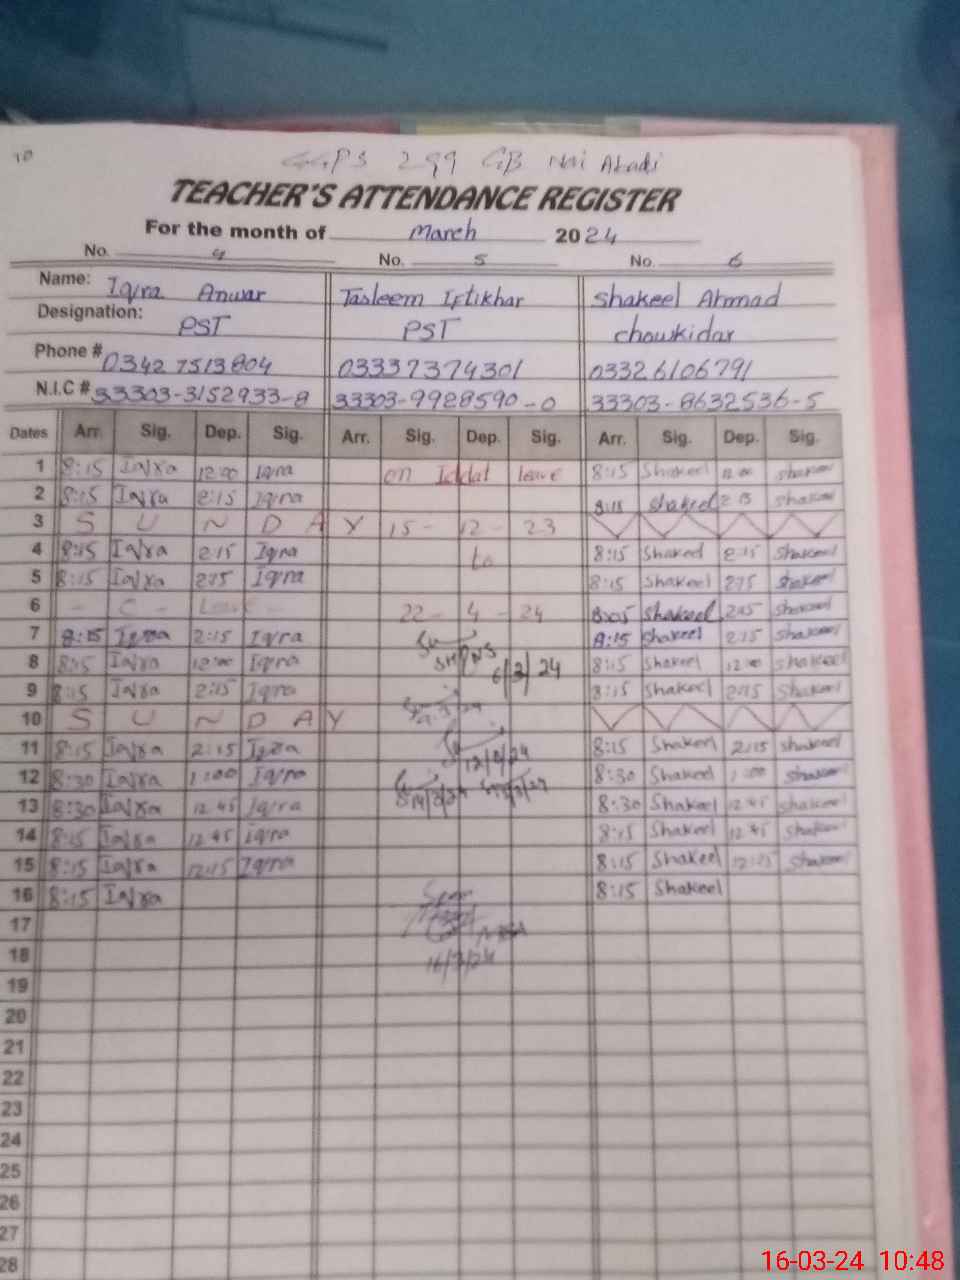 10
GGPS 299 GB Nai Abadi
TEACHER'S ATTENDANCE REGISTER
For the month of March 2024
No. 4 No. 5 No. 6
Name: Iqra Anwar Tasleem Iftikhar Shakeel Ahmad
Designation: PST PST chowkidar
Phone # 0342 7513804 03337374301 03326106791
N.I.C # 33303-3152933-8 33303-9928590-0 33303-8632536-5
Dates Arr. Sig. Dep. Sig. Arr. Sig. Dep. Sig. Arr. Sig. Dep. Sig.
1 8:15 Iqra 12:00 Iqra on Iddat leave 8:15 Shakeel 12:00 shakeel
2 8:15 Iqra 2:15 Iqra 8:15 shakeel 2:15 shakeel
3 S U N D A Y 15- 12- 23
4 8:15 Iqra 2:15 Iqra to 8:15 Shakeel 2:15 Shakeel
5 8:15 Iqra 2:15 Iqra 8:15 Shakeel 2:15 shakeel
6 - C - Leave - 22- 4- 24 shakeel 2:15 shakeel
7 8:15 Iqra 2:15 Iqra 8:15 shakeel 2:15 shakeel
8 8:15 Iqra 12:00 Iqra 6/3/24 8:15 Shakeel 12:00 shakeel
9 8:15 Iqra 2:15 Iqra 8:15 Shakeel 2:15 Shakeel
10 S U N D A Y
11 8:15 Iqra 2:15 Iqra 8:15 Shakeel 2:15 shakeel
12 8:30 Iqra 1:00 Iqra 8:30 Shakeel 1:00 shakeel
13 8:30 Iqra 12:45 Iqra 8:30 Shakeel 12:45 shakeel
14 8:15 Iqra 12:45 Iqra 8:15 Shakeel 12:45 shakeel
15 8:15 Iqra 12:15 Iqra 8:15 Shakeel 12:15 shakeel
16 8:15 Iqra 8:15 Shakeel
17
18 16/3/24
19
20
21
22
23
24
25
26
27
28
16-03-24 10:48